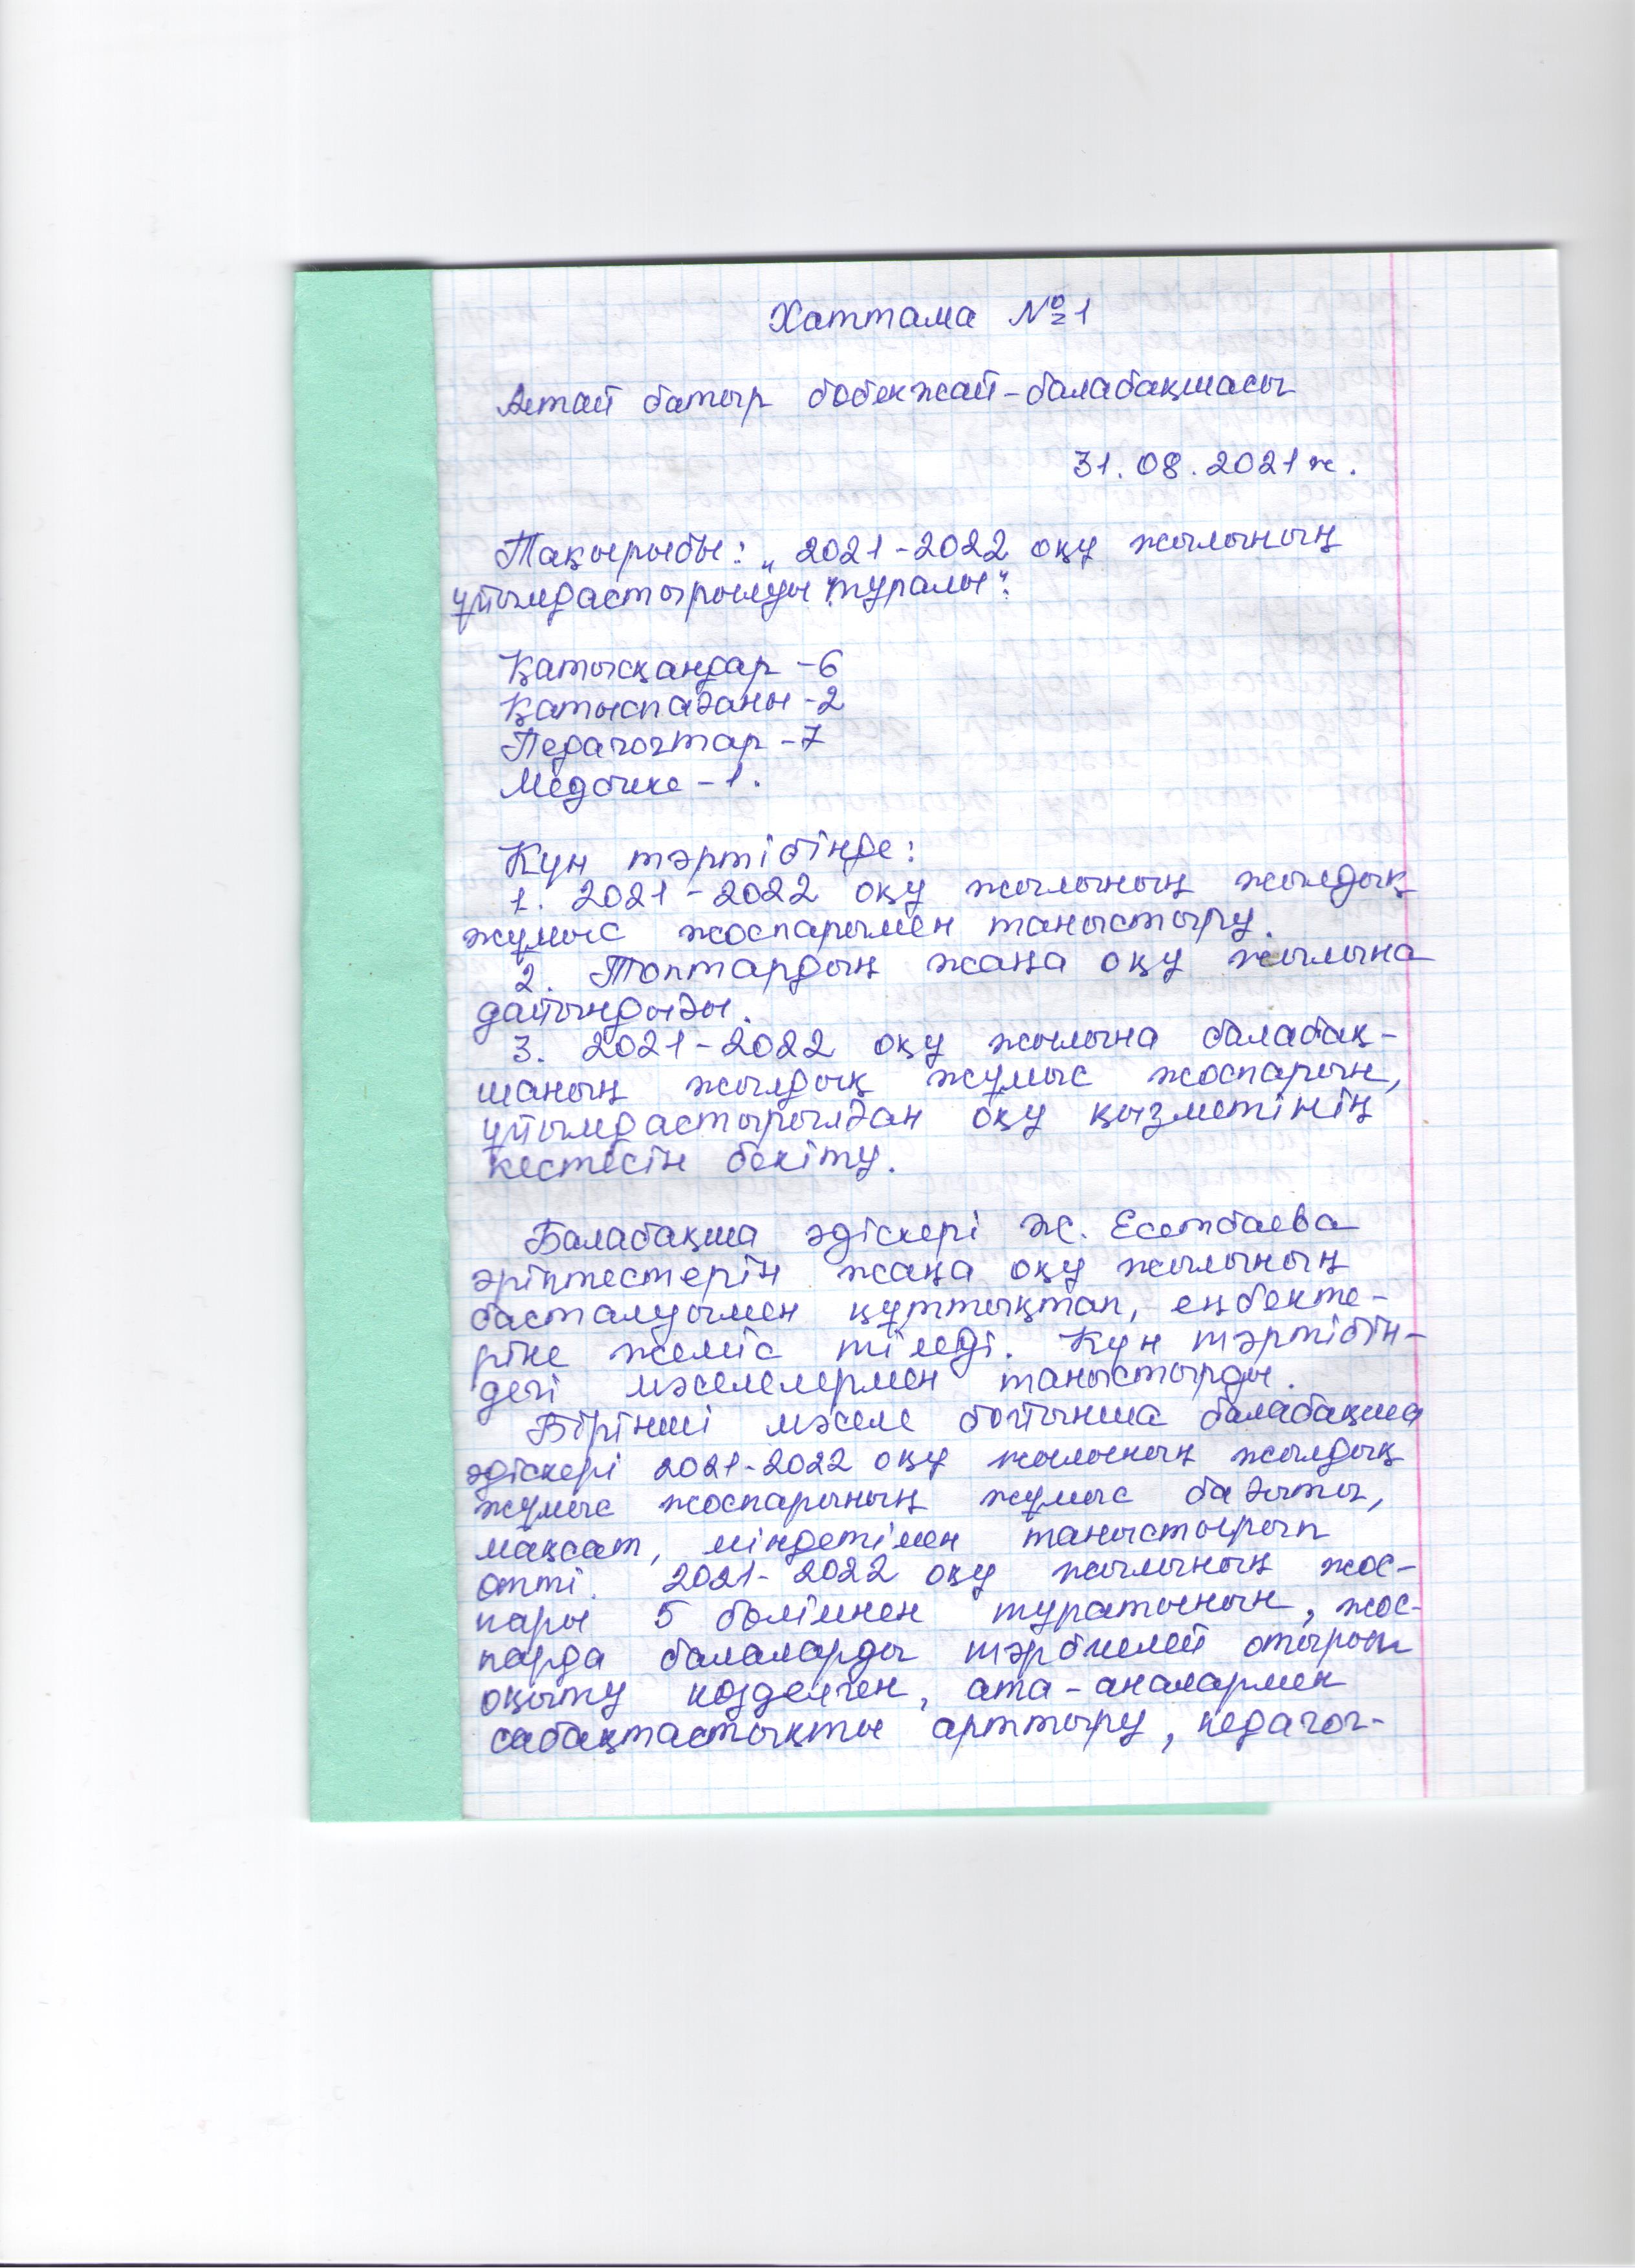 Хаттама №1
Астай батыр бөбекжай-балабақшасы
31.08.2021ж.
Тақырыбы: „2021-2022 оқу жылының
ұйымдастырылуы туралы".
Қатысқандар -6
Қатыспағаны -2
Педагогтар -7
Медбике -1.
Күн тәртібінде:
1. 2021-2022 оқу жылының жылдық
жұмыс жоспарымен таныстыру.
2. Топтардың жаңа оқу жылына
дайындығы.
3. 2021-2022 оқу жылына балабақ-
шаның жылдық жұмыс жоспарын,
ұйымдастырылған оқу қызметінің
кестесін бекіту.
Балабақша әдіскері Ж. Есенбаева
әріптестерін жаңа оқу жылының
басталуымен құттықтап, еңбекте-
ріне жеміс тіледі. Күн тәртібін-
дегі мәселелермен таныстырды.
Бірінші мәселе бойынша балабақша
әдіскері 2021-2022 оқу жылының жылдық
жұмыс жоспарының жұмыс бағыты,
мақсат, міндетімен таныстырып
өтті. 2021-2022 оқу жылының жос-
пары 5 бөлімнен тұратынын, жос-
парда балаларды тәрбиелей отырып
оқыту көзделген, ата-аналармен
сабақтастықты арттыру, педагог-